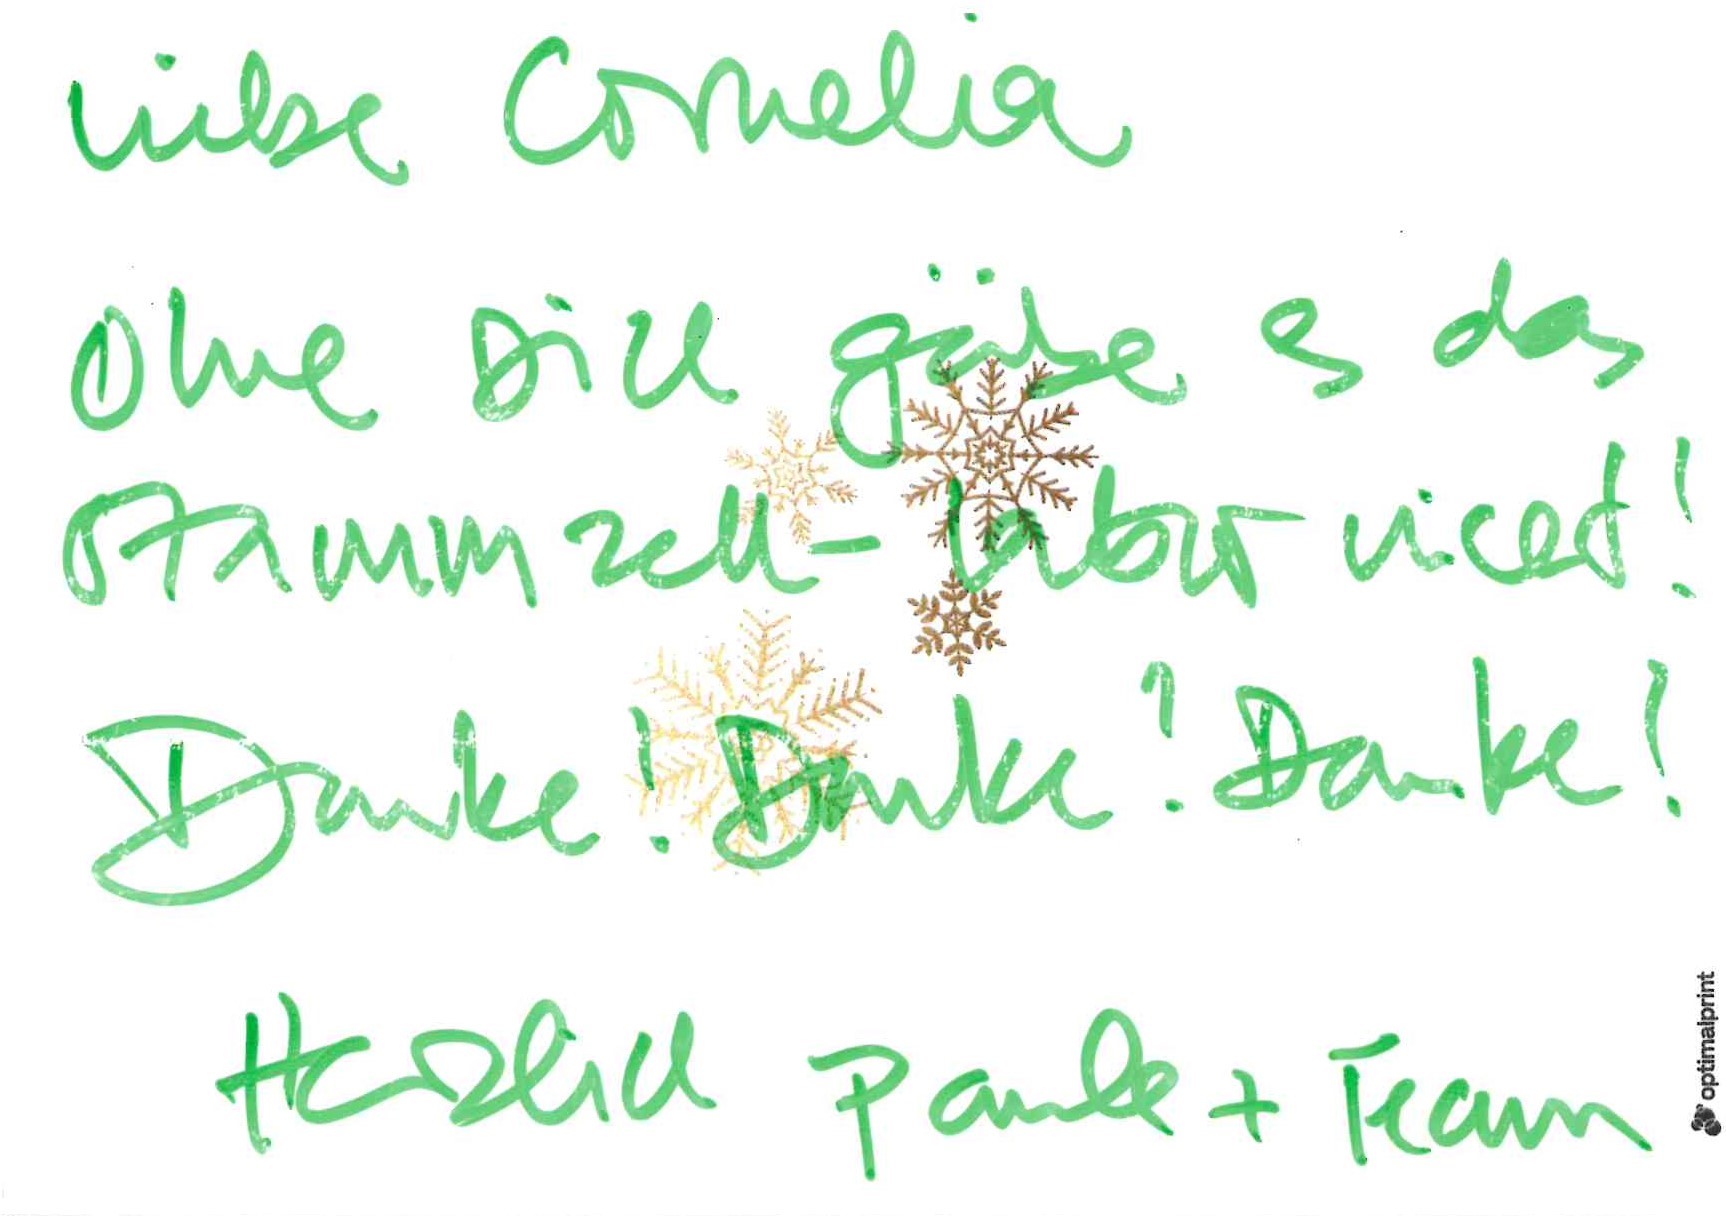 Liebe Cornelia
Ohne Dich gäbe es das
Stammzell-labor nicht!
Danke! Danke! Danke!
Herzlich Paule + Team
optimalprint